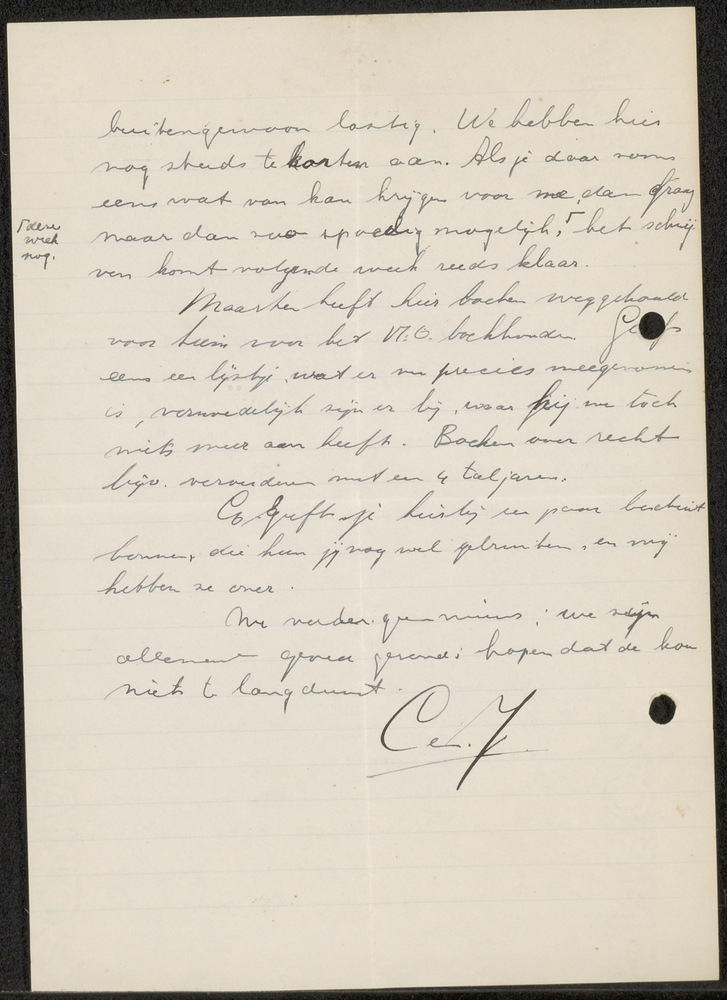 buitengewoon lastig. We hebben hier
nog steeds te korten aan. Als je daar soms
eens wat van kan krijgen voor me, dan graag
maar dan zoo spoedig mogelijk, ⌈ het schrij
⌈ deze
week
nog.
ven komt volgende week reeds klaar.
Maarten heeft hier boeken weggehaald
voor hem voor het M.O. boekhouden. Geef
eens een lijstje, wat er nu precies meegenomen
is, vermoedelijk zijn er bij, waar hij nu toch
niets meer aan heeft. Boeken over recht
bijv. verouderen met een 4 tal jaren.
Co geeft je hierbij een paar beschuit
bonnen, die kun jij nog wel gebruiken, en wij
hebben ze over.
Nu verder geen nieuws; we zijn
allemaal goed gezond; hopen dat de kou
niet te lang duurt.
C en J